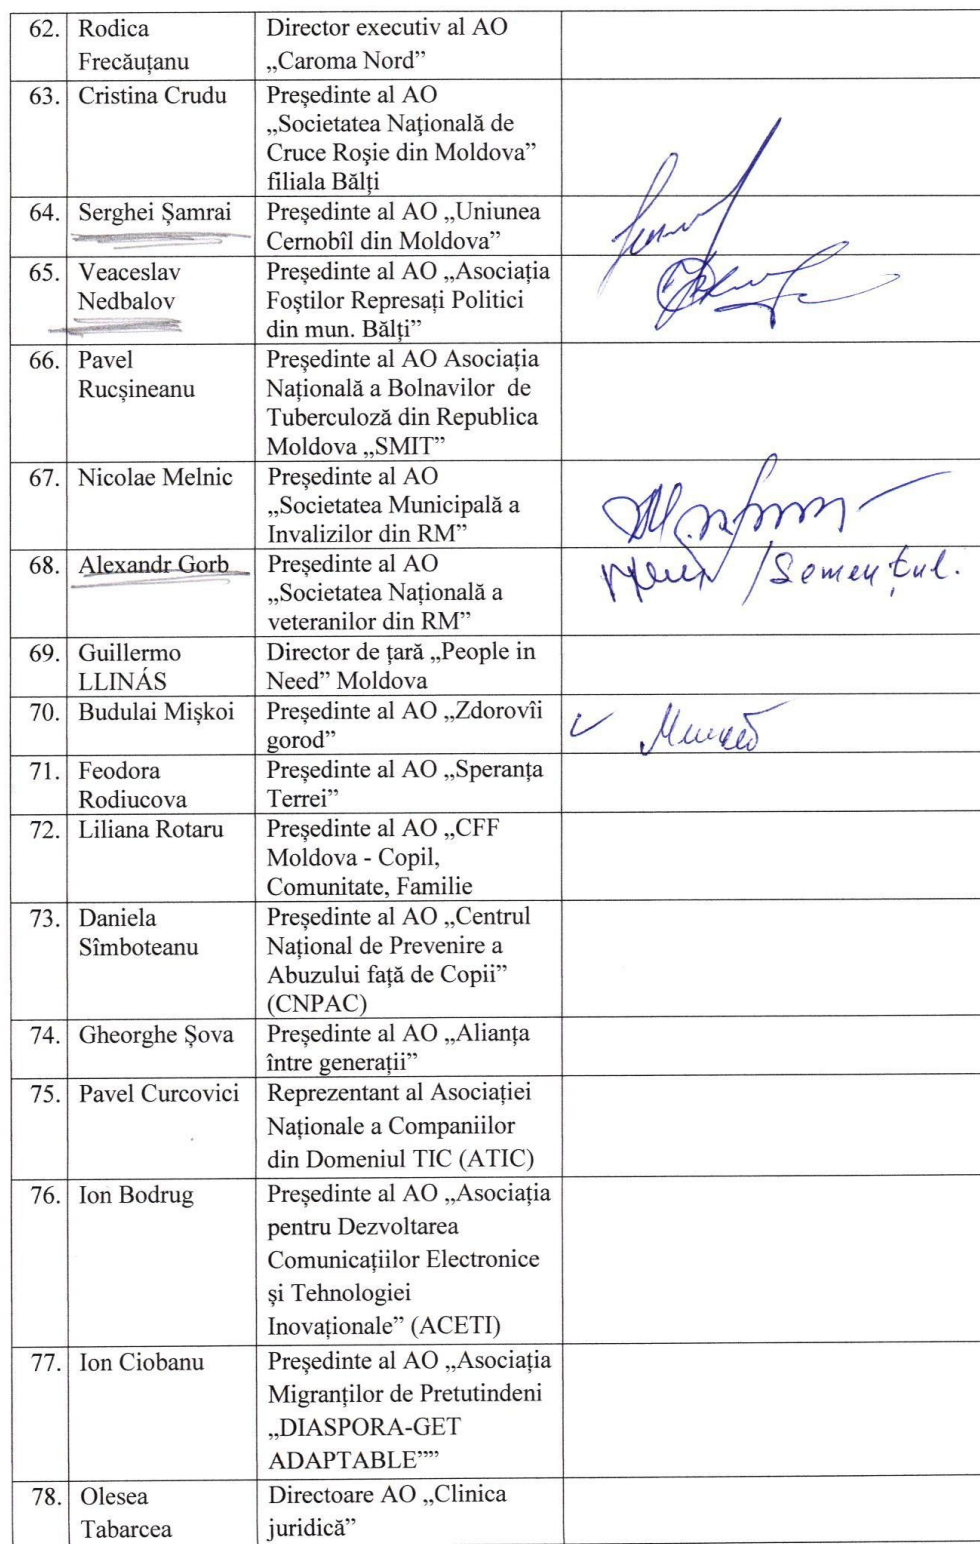 62. Rodica Director executiv al AO
Frecăuțanu „Caroma Nord”
63. Cristina Crudu Președinte al AO
„Societatea Națională de
Cruce Roșie din Moldova”
filiala Bălți
64. Serghei Șamrai Președinte al AO „Uniunea
Cernobîl din Moldova”
65. Veaceslav Președinte al AO „Asociația
Nedbalov Foștilor Represați Politici
din mun. Bălți”
66. Pavel Președinte al AO Asociația
Rucșineanu Națională a Bolnavilor de
Tuberculoză din Republica
Moldova „SMIT”
67. Nicolae Melnic Președinte al AO
„Societatea Municipală a
Invalizilor din RM”
68. Alexandr Gorb Președinte al AO
„Societatea Națională a
veteranilor din RM”
69. Guillermo Director de țară „People in
LLINÁS Need” Moldova
70. Budulai Mișkoi Președinte al AO „Zdorovîi
gorod”
71. Feodora Președinte al AO „Speranța
Rodiucova Terrei”
72. Liliana Rotaru Președinte al AO „CFF
Moldova - Copil,
Comunitate, Familie
73. Daniela Președinte al AO „Centrul
Sîmboteanu Național de Prevenire a
Abuzului față de Copii”
(CNPAC)
74. Gheorghe Șova Președinte al AO „Alianța
între generații”
75. Pavel Curcovici Reprezentant al Asociației
Naționale a Companiilor
din Domeniul TIC (ATIC)
76. Ion Bodrug Președinte al AO „Asociația
pentru Dezvoltarea
Comunicațiilor Electronice
și Tehnologiei
Inovaționale” (ACETI)
77. Ion Ciobanu Președinte al AO „Asociația
Migranților de Pretutindeni
„DIASPORA-GET
ADAPTABLE””
78. Olesea Directoare AO „Clinica
Tabarcea juridică”